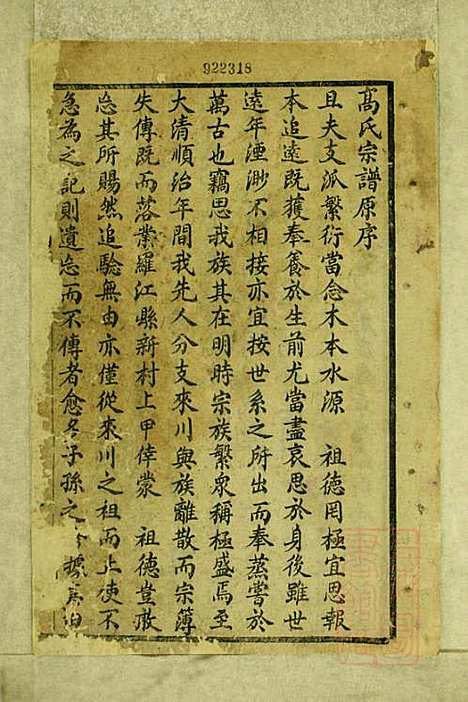 922318
高氏宗譜原序
且夫支派繁衍當念木本水源　祖德罔極宜思報
本追遠既獲奉養於生前尤當盡哀思於身後雖世
遠年湮渺不相接亦宜按世系之所出而奉蒸嘗於
萬古也竊思我族其在明時宗族繁衆稱極盛焉至
大清順治年間我先人分支來川與族離散而宗簿
失傳既而落業羅江縣新村上甲倖蒙　祖德豈敢
忘其所賜然追騐無由亦僅從來川之祖而止使不
急為之記則遺忘而不傳者愈多子孫之